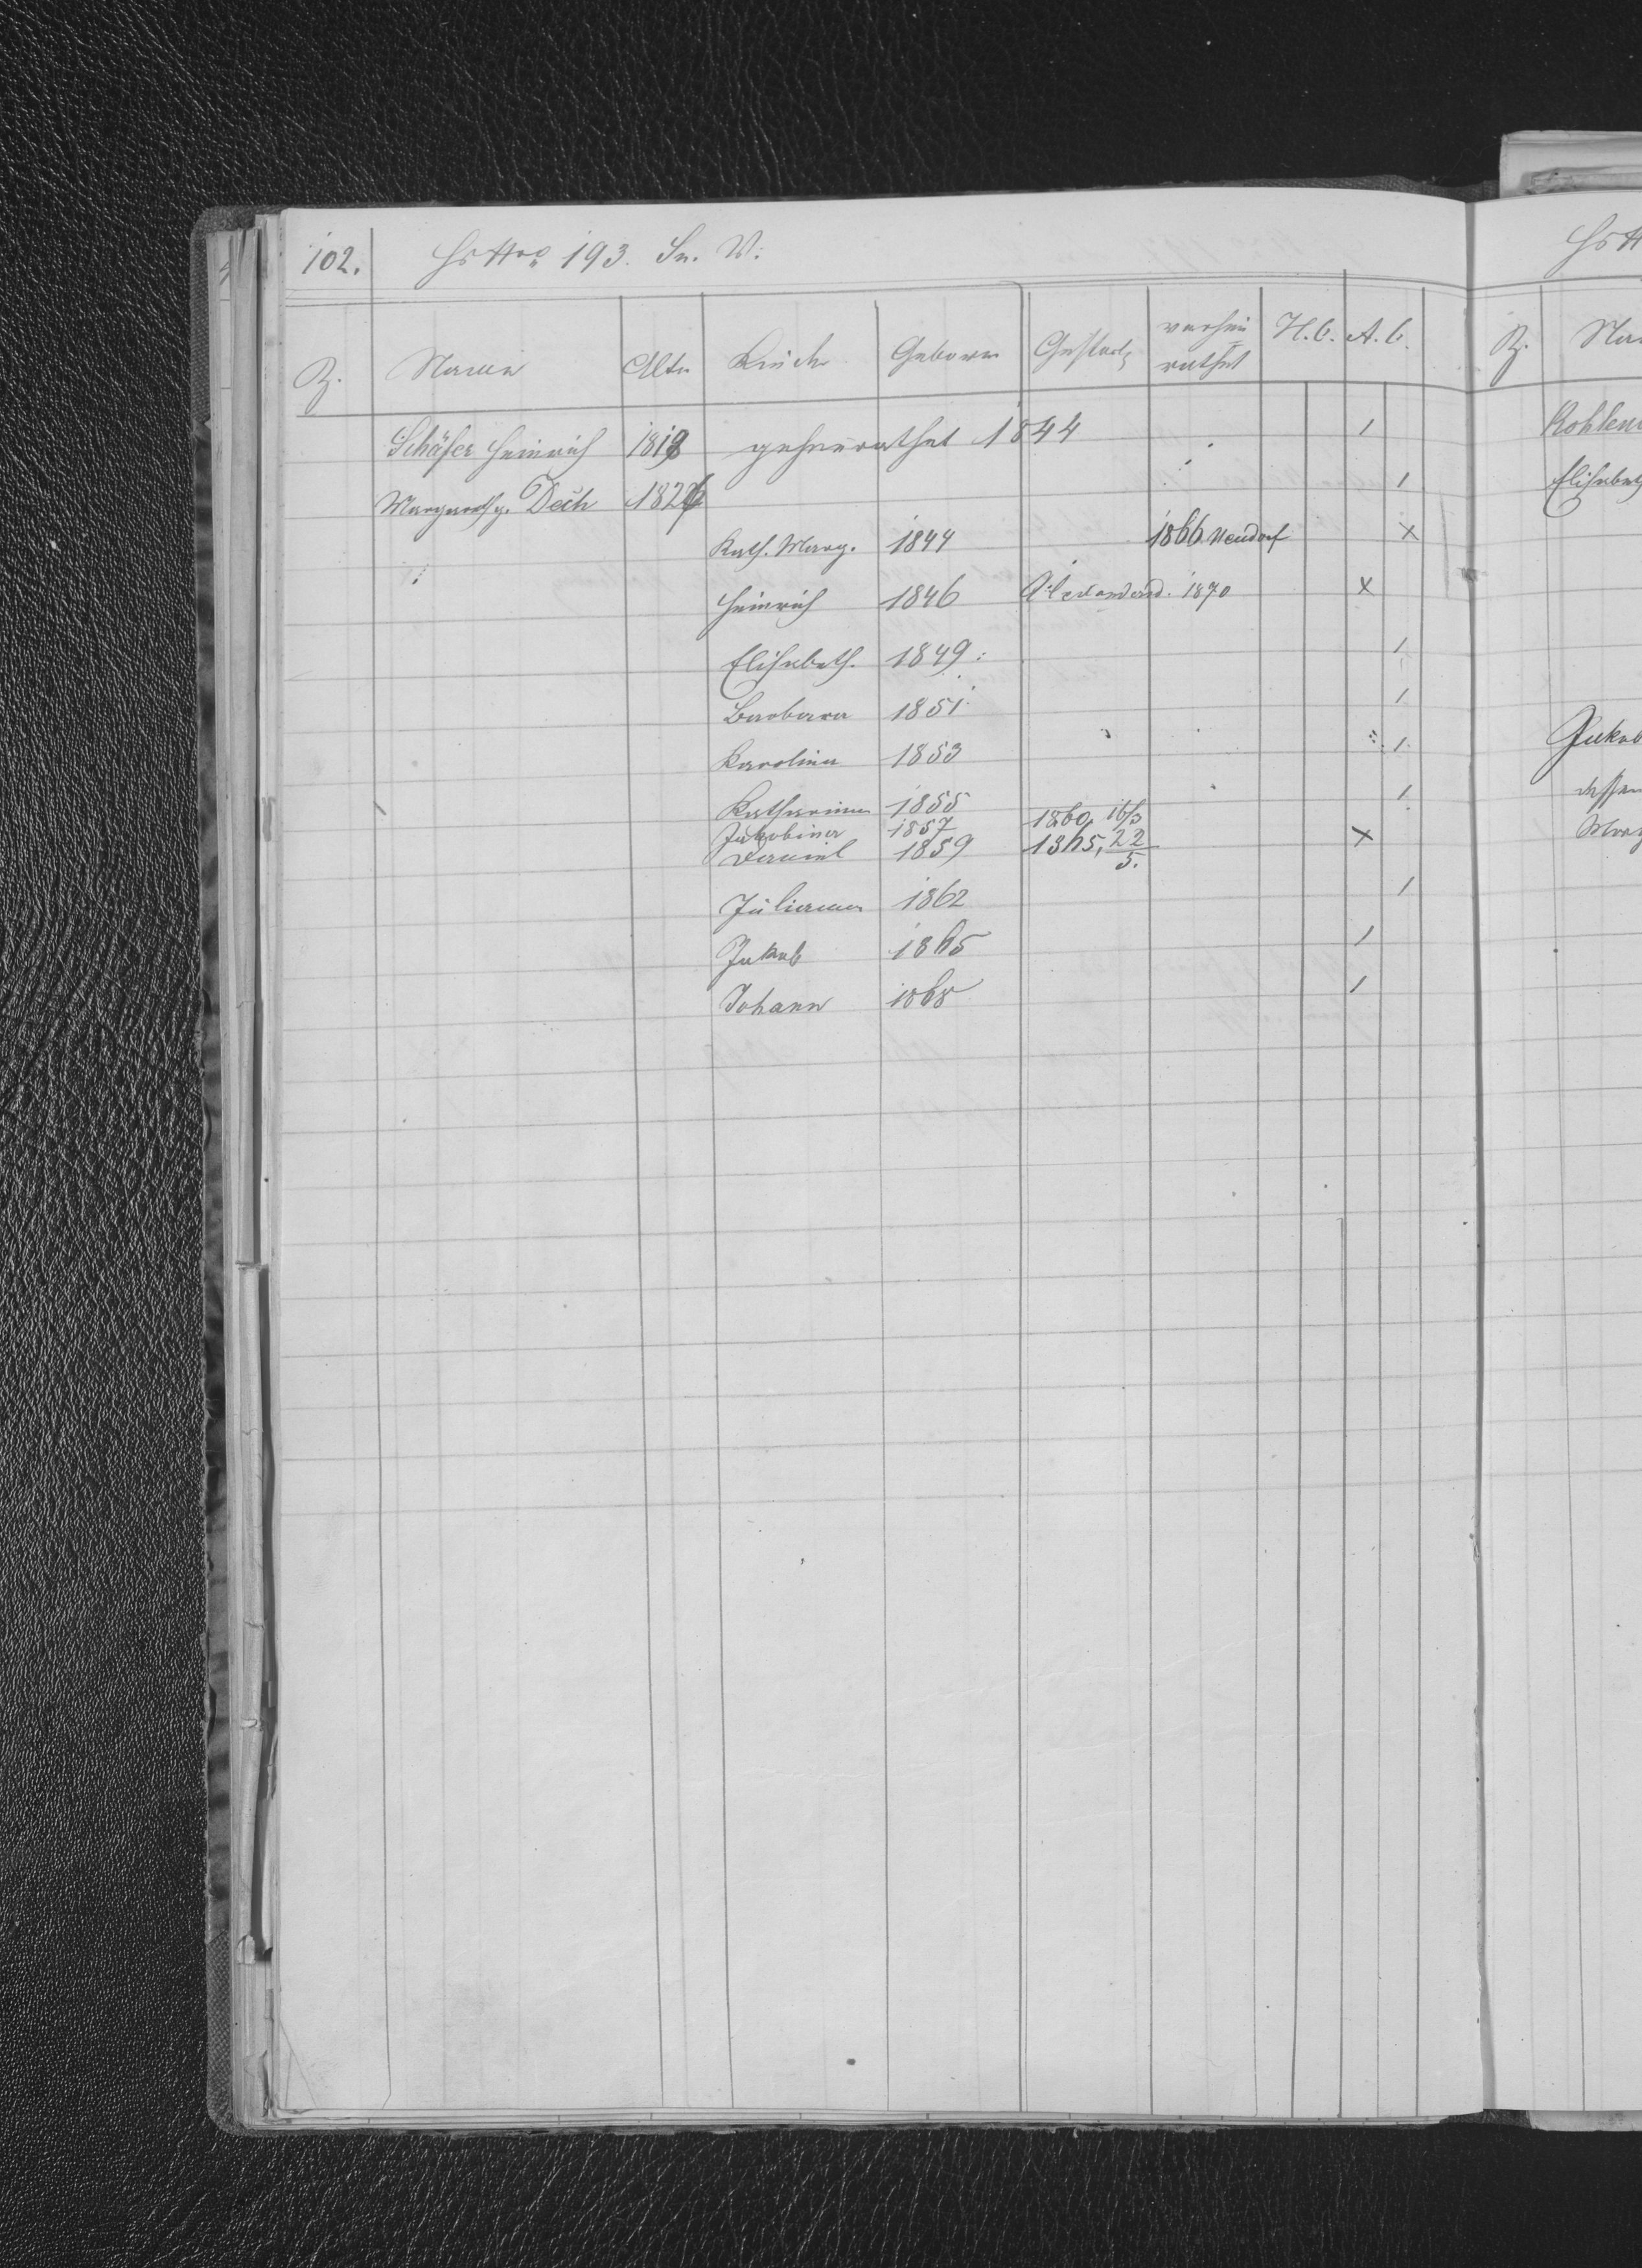 102. Hs Nro 193. Sn. W.
Z. Namen Alter Kinder Geboren Gestorb. verhei=
rathet H. C. A. C.
Schäfer Heinrich 1818 geheirathet 1844 1
Margareth g. Dech 1826 1
Kath. Marg. 1844 1866 Neudorf x
Heinrich 1846 1870 x
Elisabeth. 1849 1
Barbara 1851 1
Karolina 1853 1
Katharina 1855 1
Jakobina 1857 1860, 16/3
Daniel 1859 1865, 22/5. x
Juliana 1862 1
Jakob 1865 1
Johann 1868 1
Z.
Elisabeth
Jakob
dessen